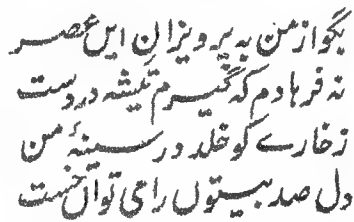 بگو از من به پرویزان این عصر
نه فرهادم که گیرم تیشه در دست
ز خارے کو خلد در سینۂ من
دل صد بیستوں را می تواں خست